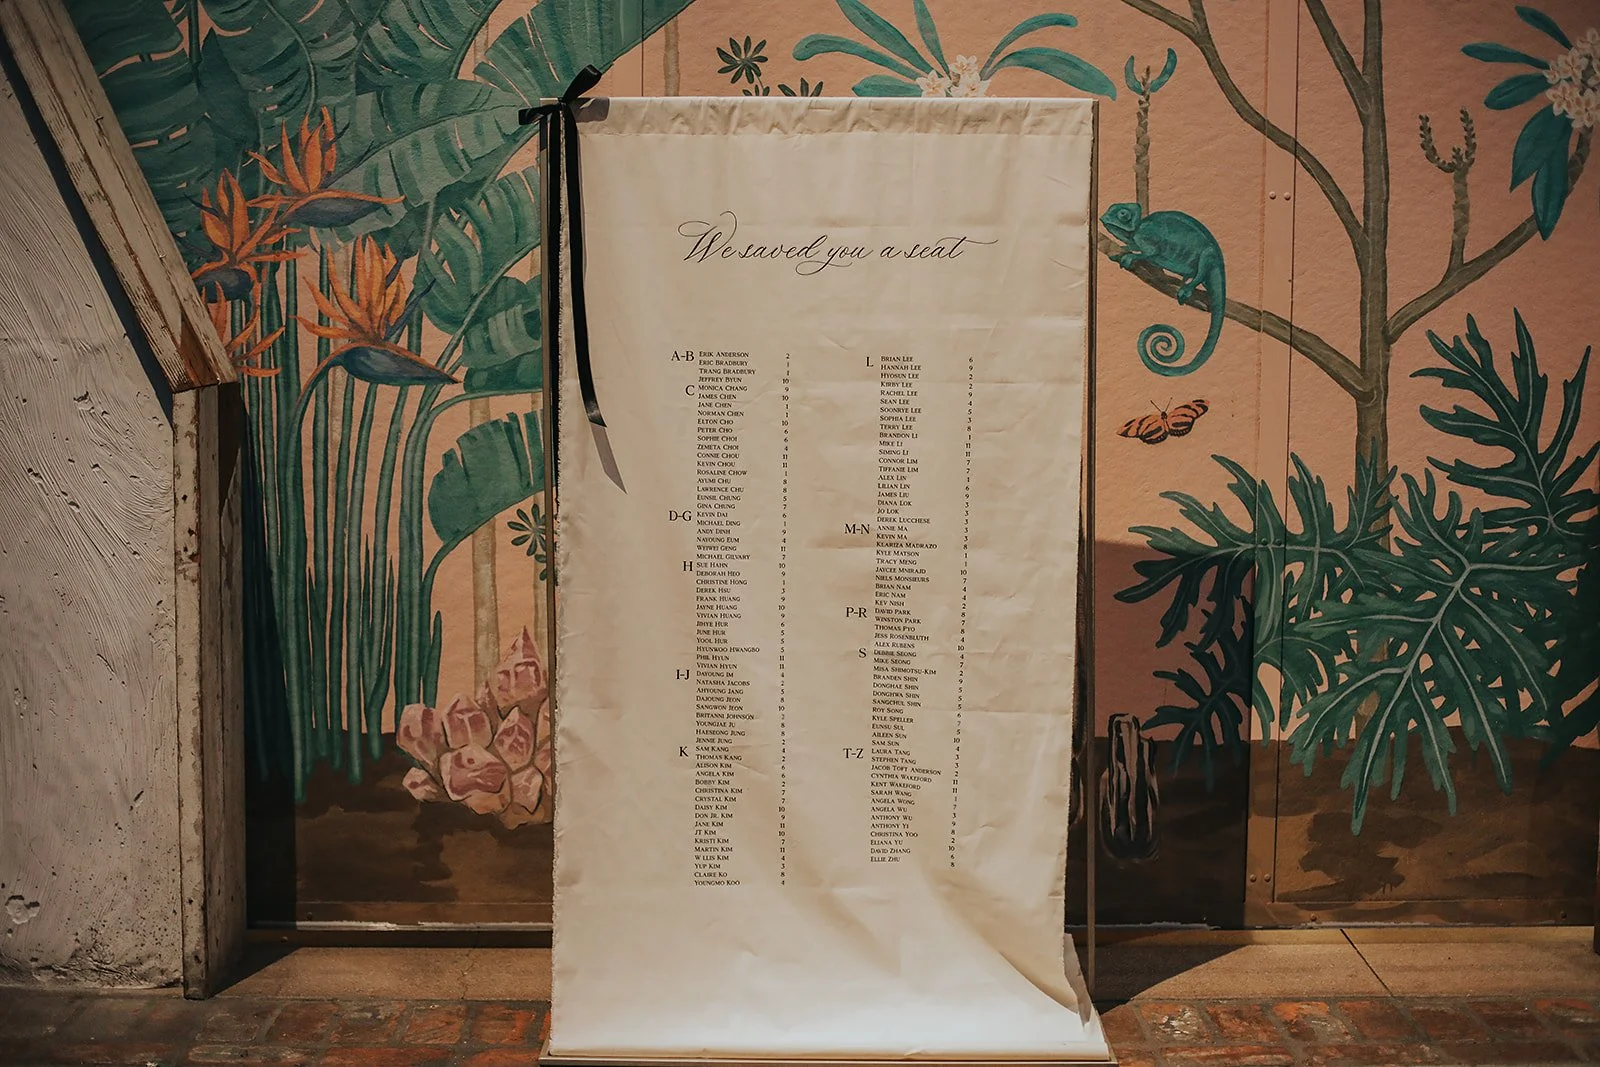 We saved you a seat
A-B ERIK ANDERSON 2
ERIC BRADBURY 1
TRANG BRADBURY 1
JEFFREY BYUN 10
C MONICA CHANG 9
JAMES CHEN 10
JANE CHEN 1
NORMAN CHEN 1
ELTON CHO 10
PETER CHO 6
SOPHIE CHOI 6
ZEMETA CHOI 4
CONNIE CHOU 11
KEVIN CHOU 11
ROSALINE CHOW 1
AYUMI CHU 8
LAWRENCE CHU 8
EUNSIL CHUNG 5
GINA CHUNG 7
D-G KEVIN DAI 6
MICHAEL DING 1
ANDY DINH 9
NAYOUNG EUM 4
WEIWEI GENG 11
MICHAEL GILVARY 7
H SUE HAHN 10
DEBORAH HEO 9
CHRISTINE HONG 1
DEREK HSU 3
FRANK HUANG 9
JAYNE HUANG 10
VIVIAN HUANG 9
JIHYE HUR 6
JUNE HUR 5
YOOL HUR 5
HYUNWOO HWANGBO 5
PHIL HYUN 11
VIVIAN HYUN 11
I-J DAYOUNG IM 4
NATASHA JACOBS 2
AHYOUNG JANG 5
DAJOUNG JEON 8
SANGWON JEON 10
BRITANNI JOHNSON 2
YOUNGJAE JU 8
HAESEONG JUNG 8
JENNIE JUNG 2
K SAM KANG 4
THOMAS KANG 2
ALISON KIM 6
ANGELA KIM 6
BOBBY KIM 2
CHRISTINA KIM 7
CRYSTAL KIM 7
DAISY KIM 10
DON JR. KIM 9
JANE KIM 11
JT KIM 10
KRISTI KIM 7
MARTIN KIM 11
W LLIS KIM 4
YUP KIM 3
CLAIRE KO 8
YOUNGMO KOO 4
L BRIAN LEE 6
HANNAH LEE 9
HYOSUN LEE 2
KIRBY LEE 2
RACHEL LEE 9
SEAN LEE 4
SOONRYE LEE 5
SOPHIA LEE 3
TERRY LEE 8
BRANDON LI 1
MIKE LI 11
SIMING LI 11
CONNOR LIM 7
TIFFANIE LIM 7
ALEX LIN 1
LILIAN LIN 6
JAMES LIU 9
DIANA LOK 3
JO LOK 3
DEREK LUCCHESE 3
M-N ANNIE MA 3
KEVIN MA 3
KLARIZA MADRAZO 8
KYLE MATSON 1
TRACY MENG 1
JAYCEE MNIRAJD 10
NIELS MONSIEURS 7
BRIAN NAM 4
ERIC NAM 4
KEV NISH 2
P-R DAVID PARK 8
WINSTON PARK 7
THOMAS PYO 8
JESS ROSENBLUTH 4
ALEX RUBENS 10
S DEBBIE SEONG 4
MIKE SEONG 7
MISA SHIMOTSU-KIM 2
BRANDEN SHIN 9
DONGHAE SHIN 5
DONGHWA SHIN 5
SANGCHUL SHIN 5
ROY SONG 6
KYLE SPELLER 7
EUNSU SUL 5
AILEEN SUN 10
SAM SUN 4
T-Z LAURA TANG 3
STEPHEN TANG 3
JACOB TOFT ANDERSON 2
CYNTHIA WAKEFORD 11
KENT WAKEFORD 11
SARAH WANG 1
ANGELA WONG 7
ANGELA WU 3
ANTHONY WU 9
ANTHONY YI 8
CHRISTINA YOO 2
ELIANA YU 10
DAVID ZHANG 6
ELLIE ZHU 8